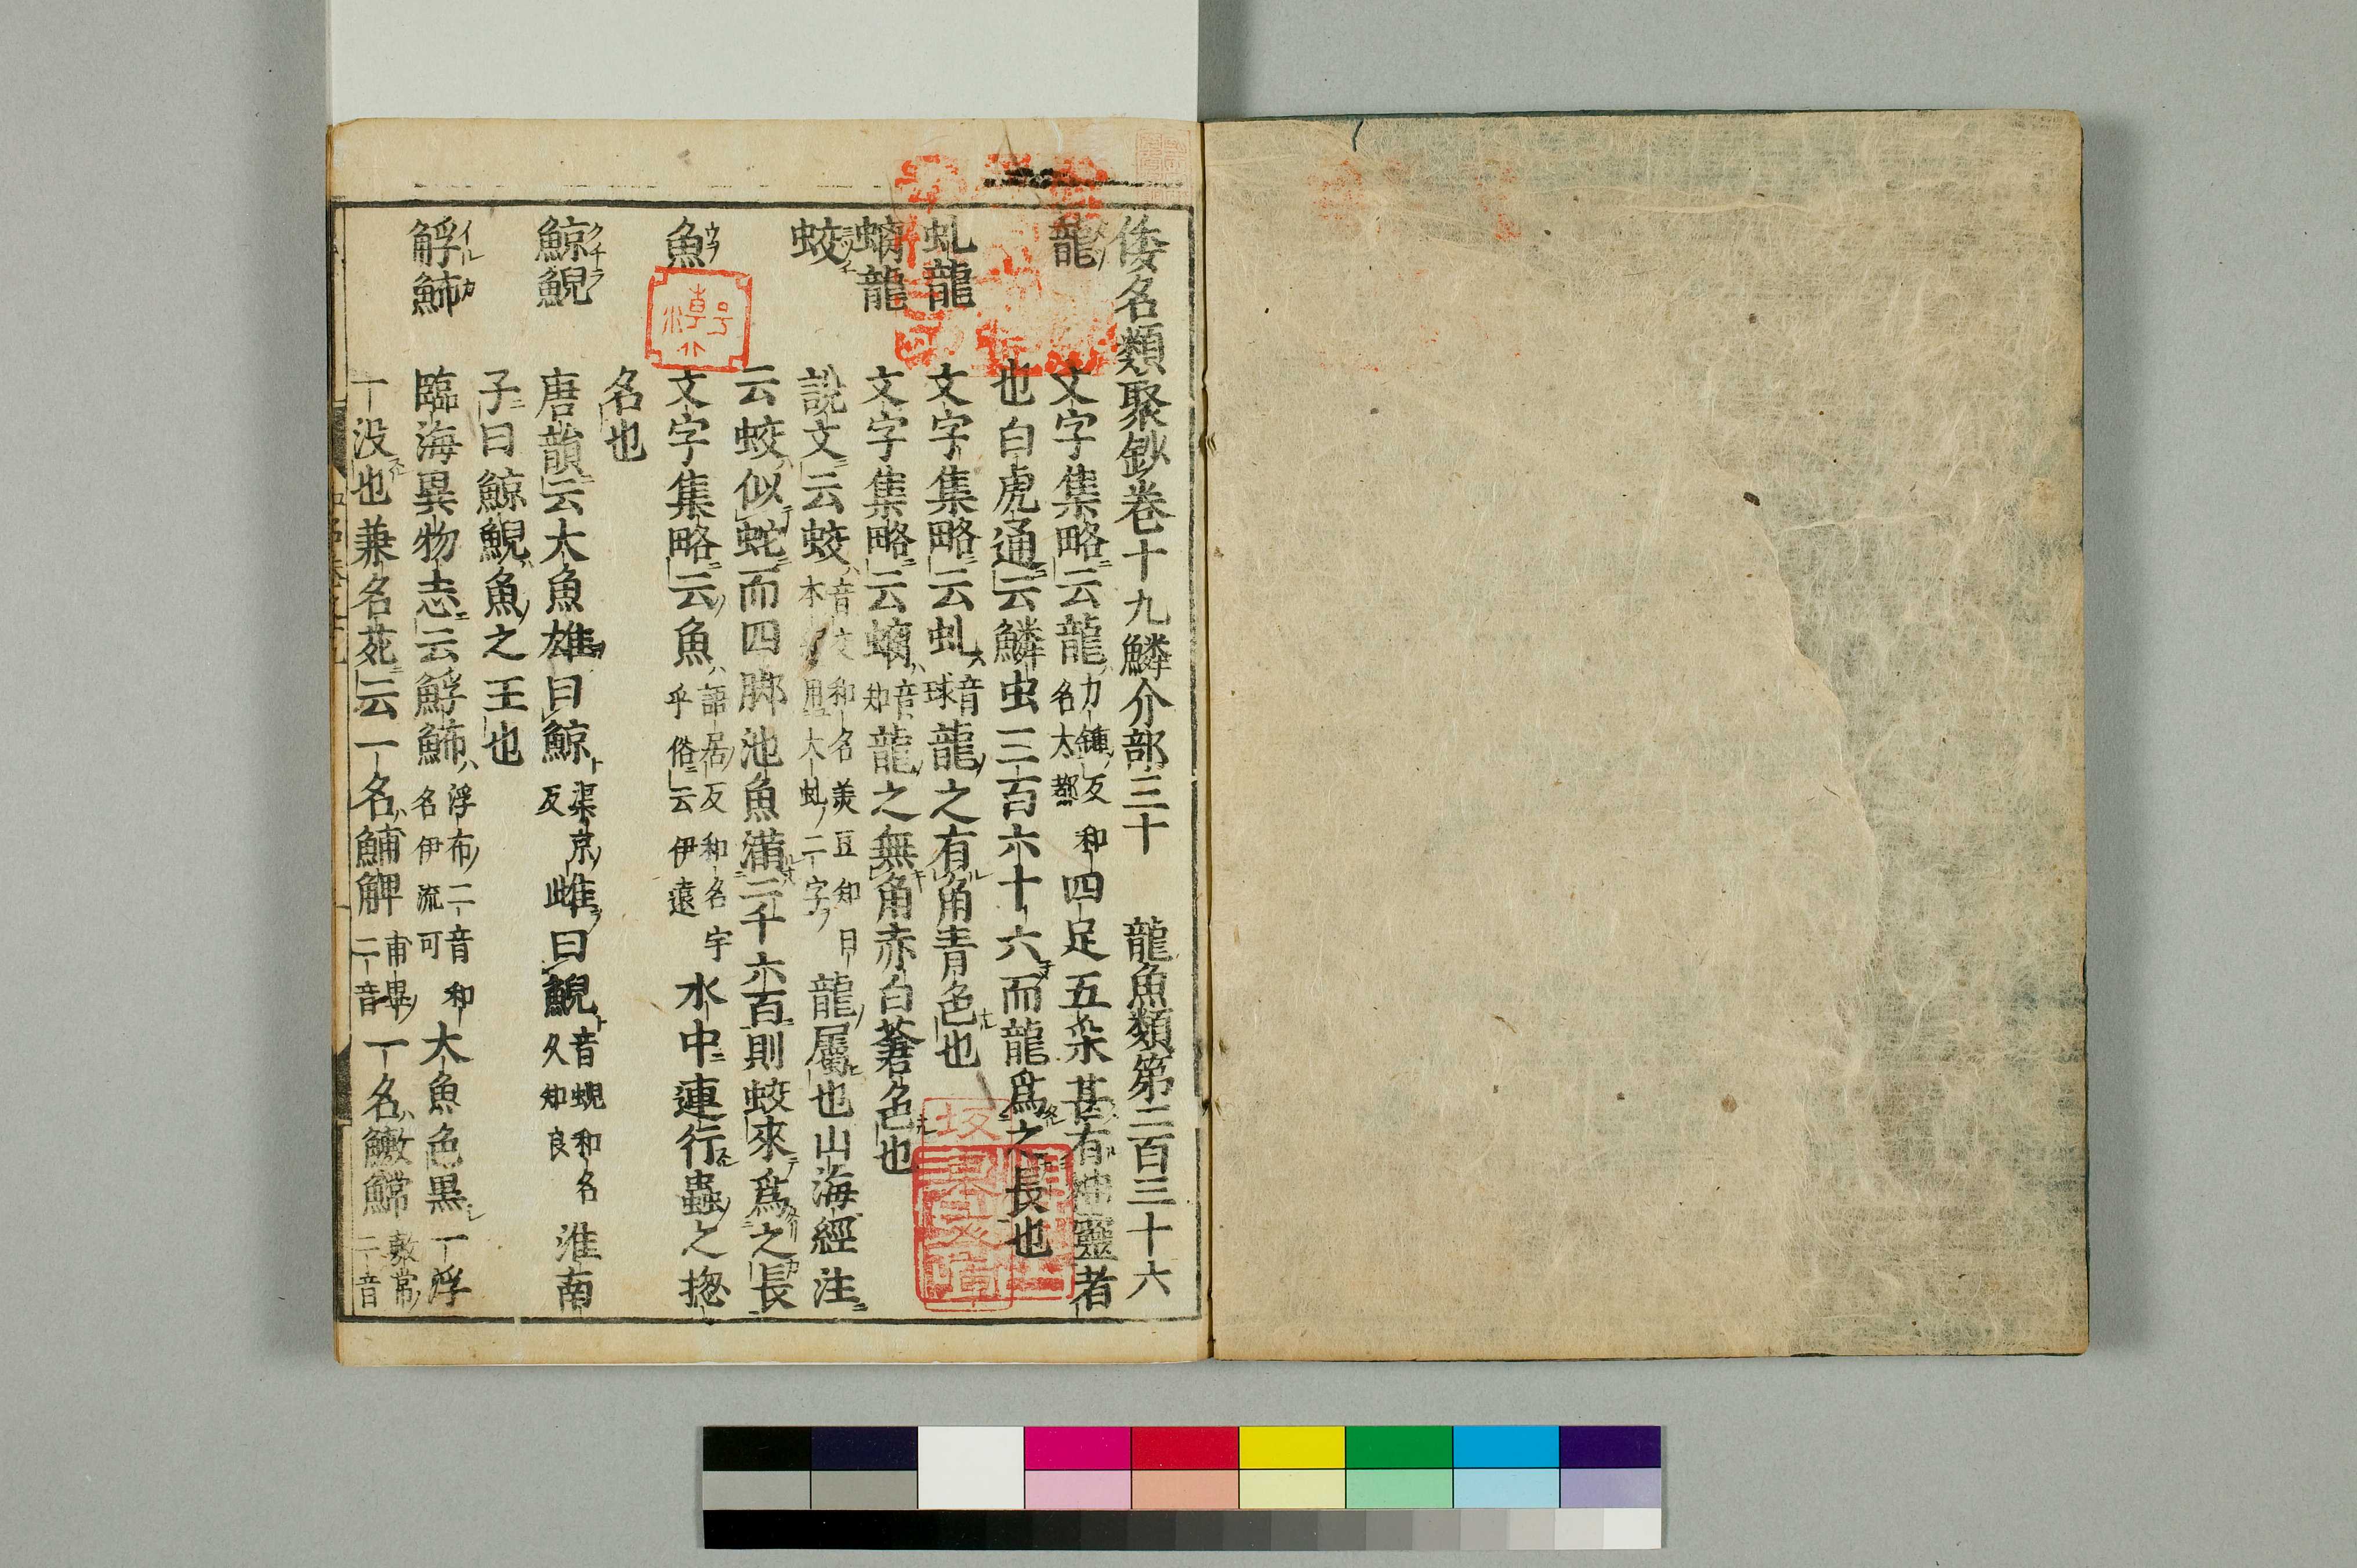 倭名類聚鈔卷十九鱗介部三十 龍魚類第二百三十六
龍 文字集略云龍力鍾反和名太都四足五采甚有神靈者
也白虎通云鱗虫三百六十六而龍爲之長也
虬龍 文字集略云虬音球龍之有角青色也
螭龍 文字集略云螭音知龍之無角赤白蒼色也
蛟 説文云蛟音交和名美豆知日本紀用大虬二字龍屬也山海經注
云蛟似蛇而四脚池魚滿二千六百則蛟來爲之長
魚 文字集略云魚語居反和名宇乎俗云伊遠水中連行蟲之揔
名也
鯨鯢 唐韻云大魚雄曰鯨渠京反雌曰鯢音蜺和名久知良淮南
子曰鯨鯢魚之王也
䱐䰽 臨海異物志云䱐䰽浮布二音和名伊流可大魚色黒一浮
一没也兼名苑云一名䱝䱝甫畢二音一名鱉鱨敷常二音